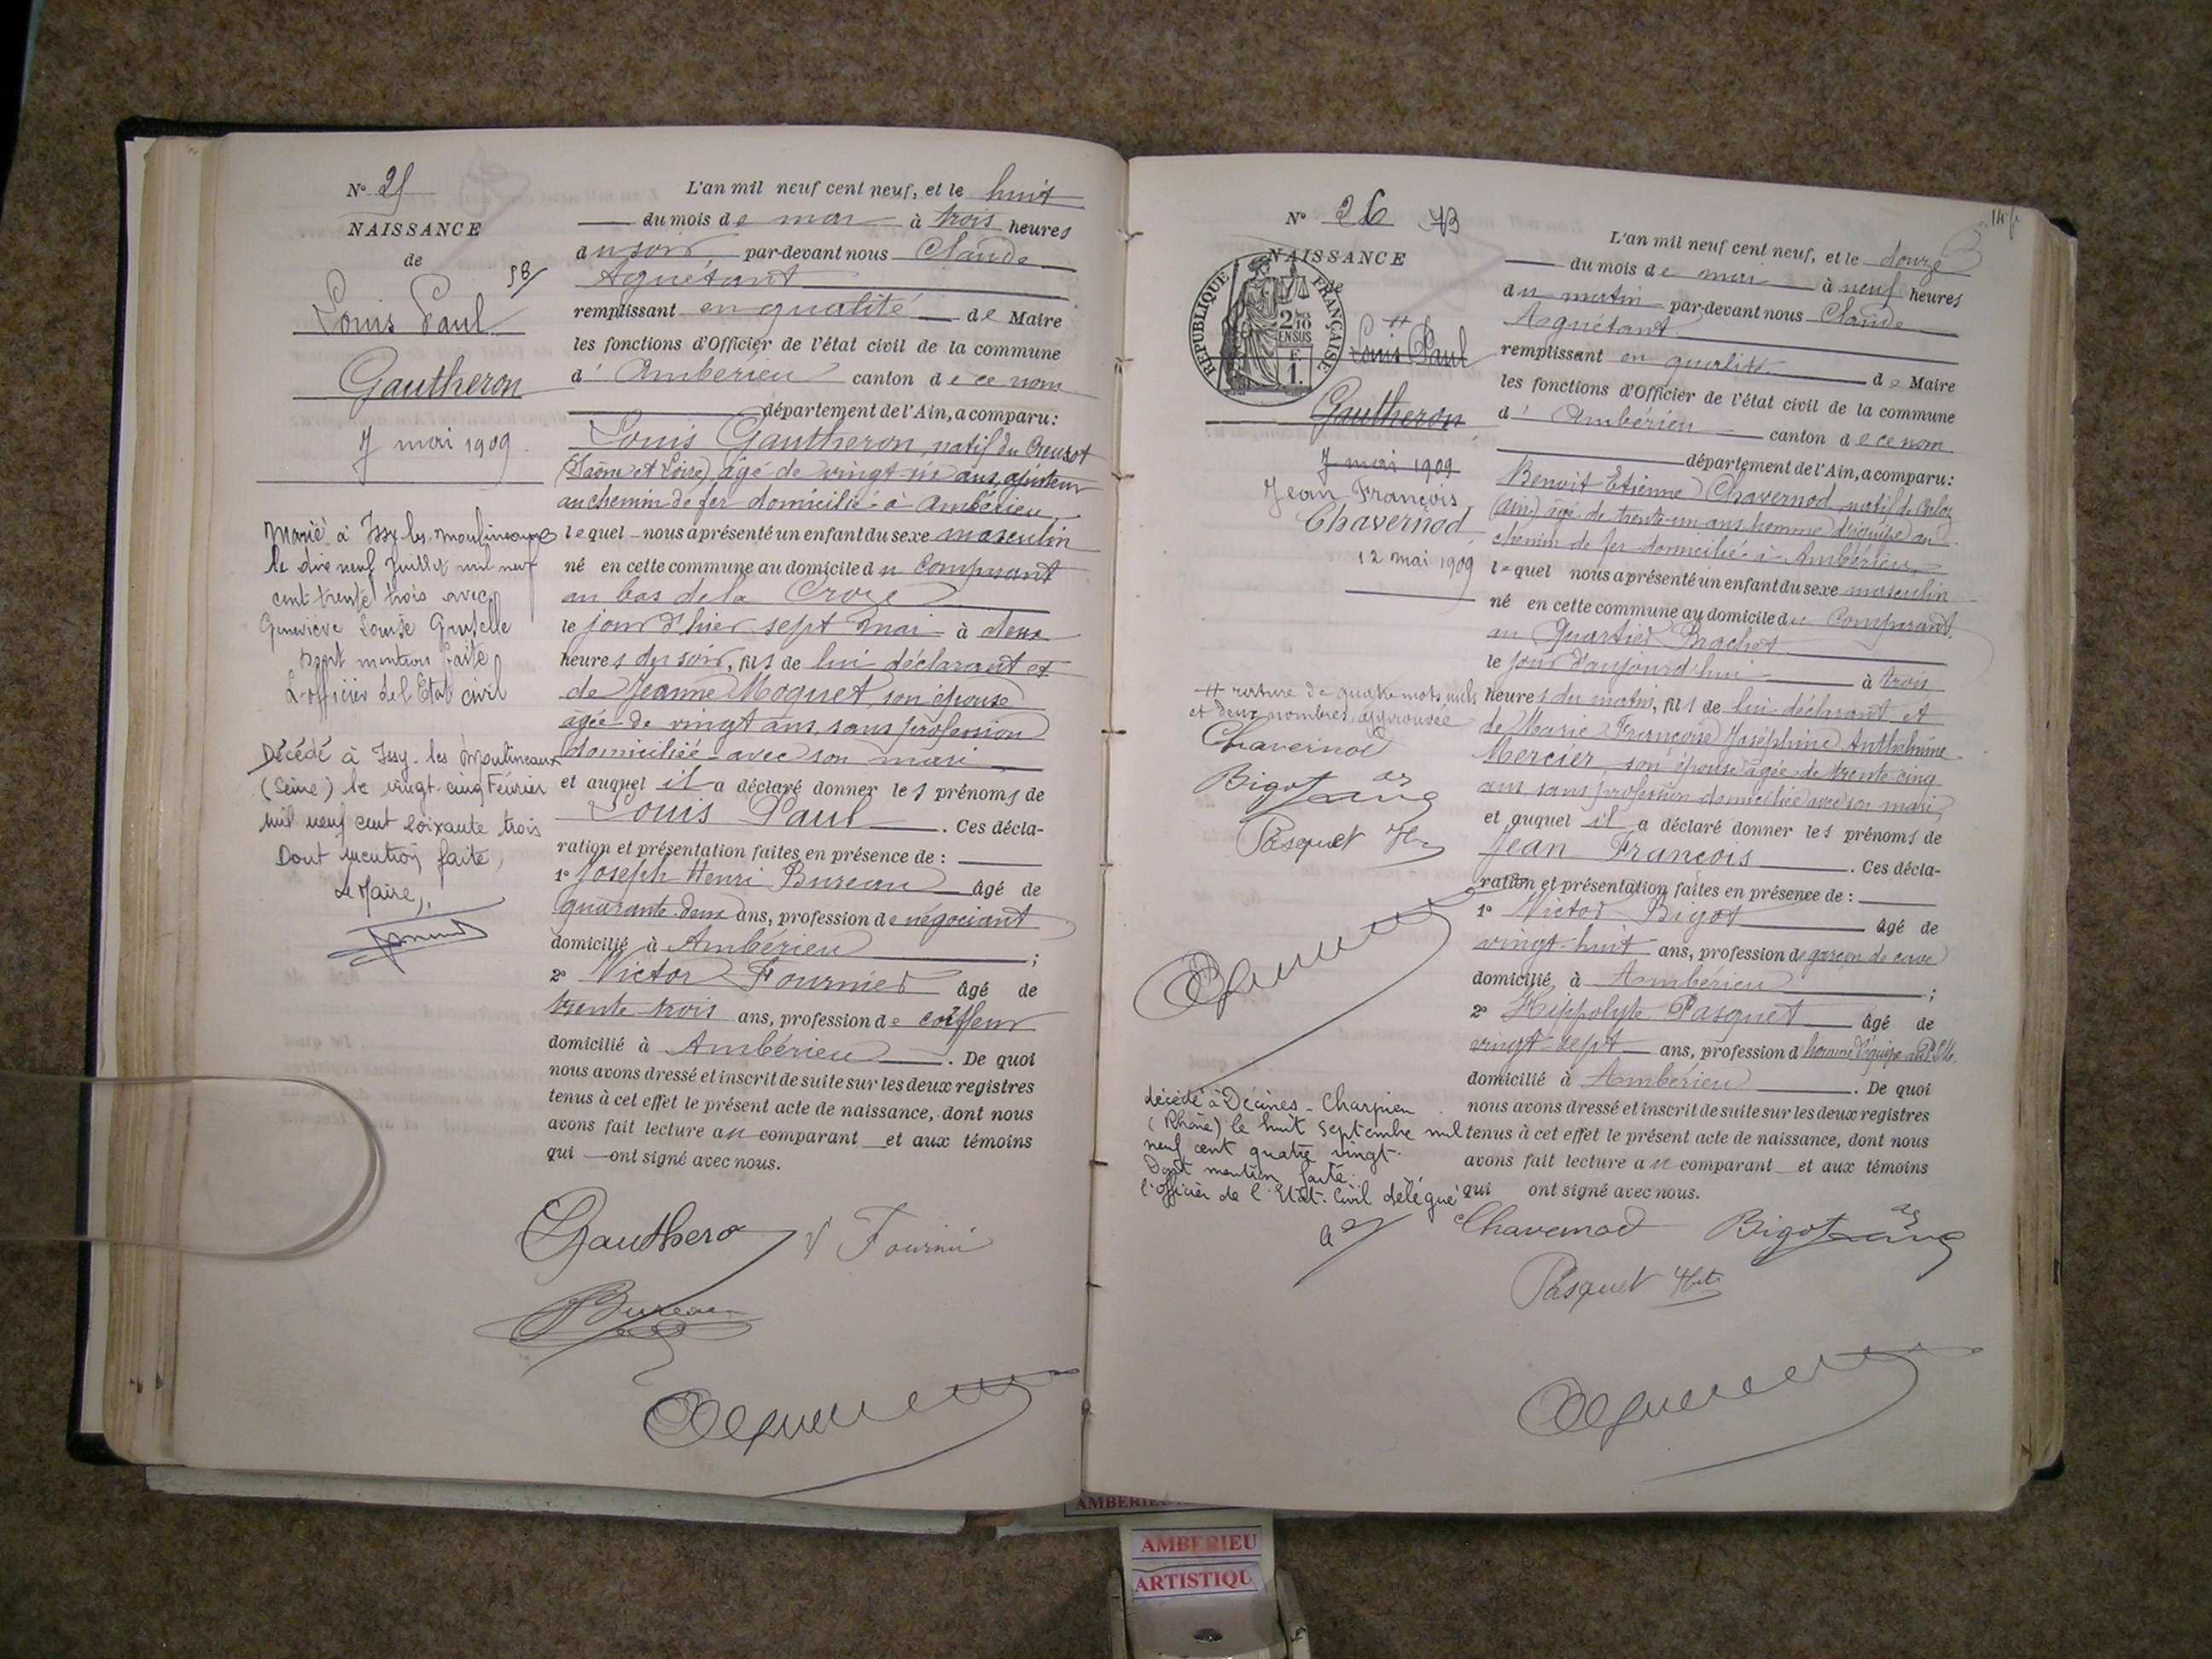 N° 25
NAISSANCE
de
58/
Louis Paul
Gautheron
7 mai 1909.
Marié à Issy les Moulineaux
le dix neuf Juillet mil neuf
cent trente trois avec
Geneviève Louise
Dont mention faite
L'officier de l'Etat civil
Décédé à Issy-les Moulineaux
(Seine) le vingt-cinq Février
mil neuf cent soixante trois
Dont mention faite,
Le Maire,
L'an mil neuf cent neuf, et le huit
du mois de mai à trois heures
du soir par-devant nous Claude
Aguétant
remplissant en qualité de Maire
les fonctions d'Officier de l'état civil de la commune
d' Ambérieu canton de ce nom
département de l'Ain, a comparu:
Louis Gautheron, natif du Creusot
(Saône et Loire) âgé de vingt-six ans, ajusteur
au chemin de fer domicilié à Ambérieu,
lequel nous a présenté un enfant du sexe masculin
né en cette commune au domicile du Comparant
au bas de la Croze
le jour d'hier sept mai à deux
heures du soir, fils de lui déclarant et
de Jeanne Moquet, son épouse
âgée de vingt ans, sans profession
domiciliée avec son mari
et auquel il a déclaré donner les prénoms de
Louis Paul. Ces décla-
ration et présentation faites en présence de :
1° Joseph Henri Bureau âgé de
quarante deux ans, profession de négociant
domicilié à Ambérieu ;
2° Victor Fournier âgé de
trente trois ans, profession de coiffeur
domicilié à Ambérieu. De quoi
nous avons dressé et inscrit de suite sur les deux registres
tenus à cet effet le présent acte de naissance, dont nous
avons fait lecture au comparant et aux témoins
qui ont signé avec nous.
Gauthero
V Fournier
Bureau
Aguétant
N° 26 73
NAISSANCE
de
RÉPUBLIQUE FRANÇAISE
2/10 EN SUS
F.
1.
#
Louis Paul
Gautheron
7 mai 1909
Jean François
Chavernod
12 mai 1909
# rature de quatre mots nuls
et deux nombres, approuvée
Chavernod
Bigot
Pasquet
Aguétant
décédé à Décines-Charpieu
(Rhône) le huit Septembre mil
neuf cent quatre vingt.
Dont mention faite.
l'officier de l'Etat-Civil délégué
L'an mil neuf cent neuf, et le douze
du mois de mai à neuf heures
du matin par-devant nous Claude
Aguétant
remplissant en qualité de Maire
les fonctions d'Officier de l'état civil de la commune
d' Ambérieu canton de ce nom
département de l'Ain, a comparu:
Benoit Etienne Chavernod natif de Culoz
(Ain) âgé de trente-un ans, homme d'équipe au
chemin de fer domicilié à Ambérieu,
lequel nous a présenté un enfant du sexe masculin
né en cette commune au domicile du Comparant
au Quartier Brachet
le jour d'aujourd'hui à trois
heures du matin, fils de lui déclarant et
de Marie Françoise Joséphine Anthelmine
Mercier, son épouse âgée de trente cinq
ans sans profession domiciliée avec son mari
et auquel il a déclaré donner les prénoms de
Jean François. Ces décla-
ration et présentation faites en présence de :
1° Victor Bigot âgé de
vingt-huit ans, profession de garçon de cave
domicilié à Ambérieu ;
2° Hippolyte Pasquet âgé de
vingt-sept ans, profession d'homme d'équipe au P.L.M.
domicilié à Ambérieu. De quoi
nous avons dressé et inscrit de suite sur les deux registres
tenus à cet effet le présent acte de naissance, dont nous
avons fait lecture au comparant et aux témoins
qui ont signé avec nous.
Chavernod
Bigot
Pasquet
Aguétant
AMBERIEU
ARTISTIQU